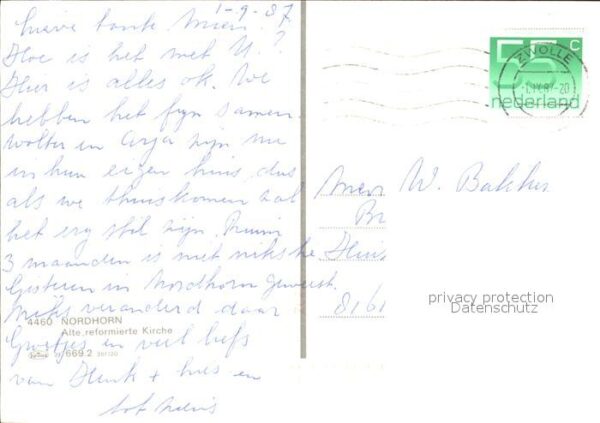 1-9-87
Lieve tante Mien.
Hoe is het met U.?
Hier is alles ok. We
hebben het fijn samen.
Wolter en Arja zijn nu
in hun eigen huis, dus
als we thuiskomen zal
het erg stil zijn. Ruim
3 maanden is niet niks he
Gisteren in Nordhorn geweest.
Niks veranderd daar
4460 NORDHORN
Alte reformierte Kirche
669.2
Groetjes en veel liefs
van Henk + en
tot ziens
55 c
nederland
ZWOLLE
W. Bakker
Br
Huis
8161
privacy protection
Datenschutz